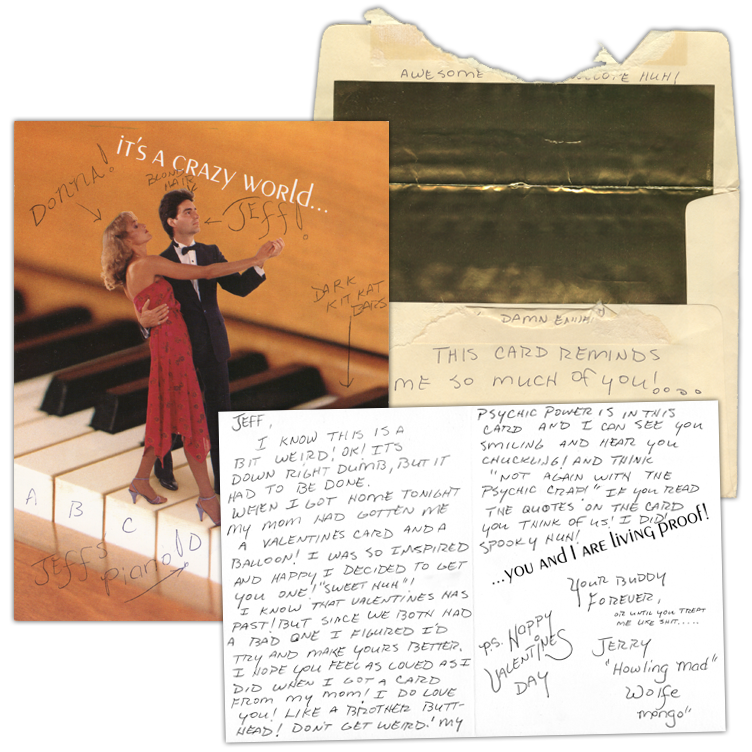 AWESOME
HUH!
DAMN
THIS CARD REMINDS
ME SO MUCH OF YOU!....
iT'S A CRAZY WORLD...
DONNA!
BLOND
HAIR
JEFF!
DARK
KIT KAT
BARS
A B C D
JEFF'S
piano!
JEFF,
I KNOW THIS IS A
BIT WEIRD! OK! ITS
DOWN RIGHT DUMB, BUT IT
HAD TO BE DONE.
WHEN I GOT HOME TONIGHT
MY MOM HAD GOTTEN ME
A VALENTINES CARD AND A
BALLOON! I WAS SO INSPIRED
AND HAPPY I DECIDED TO GET
YOU ONE! "SWEET HUH"!
I KNOW THAT VALENTINES HAS
PAST! BUT SINCE WE BOTH HAD
A BAD ONE I FIGURED I'D
TRY AND MAKE YOURS BETTER.
I HOPE YOU FEEL AS LOVED AS I
DID WHEN I GOT A CARD
FROM MY MOM! I DO LOVE
YOU! LIKE A BROTHER BUTT-
HEAD! DON'T GET WEIRD! MY
PSYCHIC POWER IS IN THIS
CARD AND I CAN SEE YOU
SMILING AND HEAR YOU
CHUCKLING! AND THINK
"NOT AGAIN WITH THE
PSYCHIC CRAP!" IF YOU READ
THE QUOTES ON THE CARD
YOU THINK OF US! I DID!
SPOOKY HUH!
...YOU AND I ARE LIVING PROOF!
YOUR BUDDY
FOREVER,
OR UNTIL YOU TREAT
ME LIKE SHIT.....
JERRY
"Howling mad"
Wolfe
mongo"
P.S. HAPPY
VALENTINES
DAY